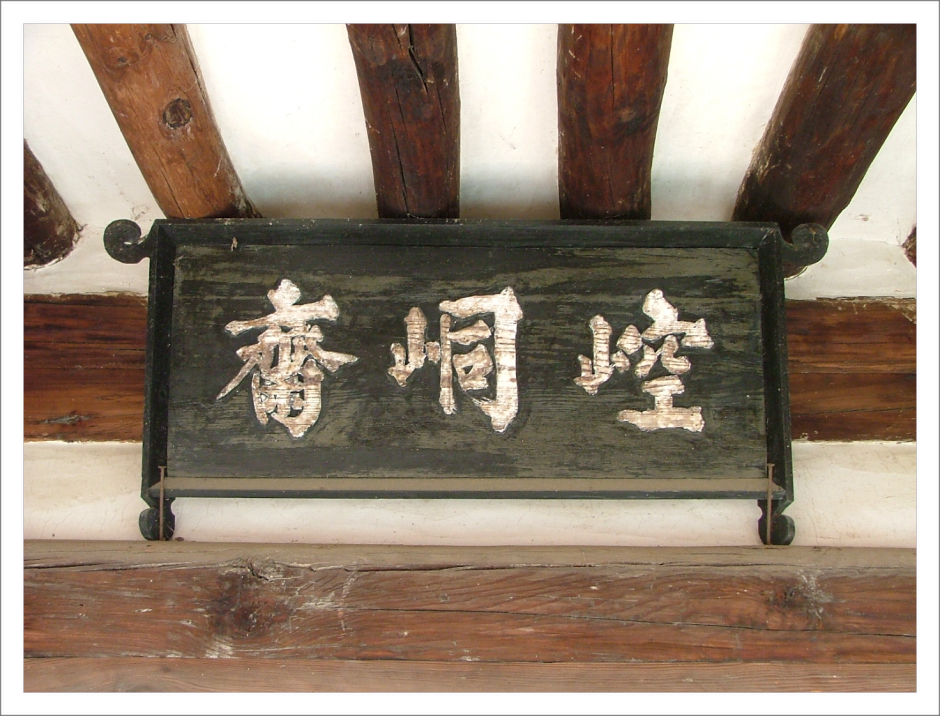 崆峒齋